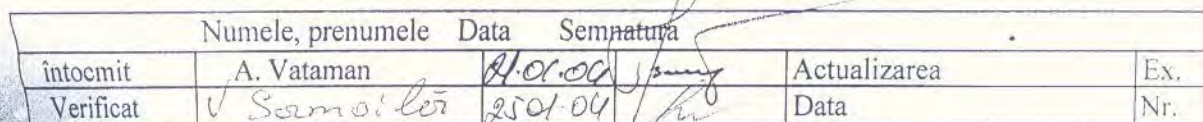 Numele, prenumele Data Semnatura
întocmit A. Vataman 01.04 Actualizarea Ex.
Verificat V Samoilă 25 01.04 Data Nr.